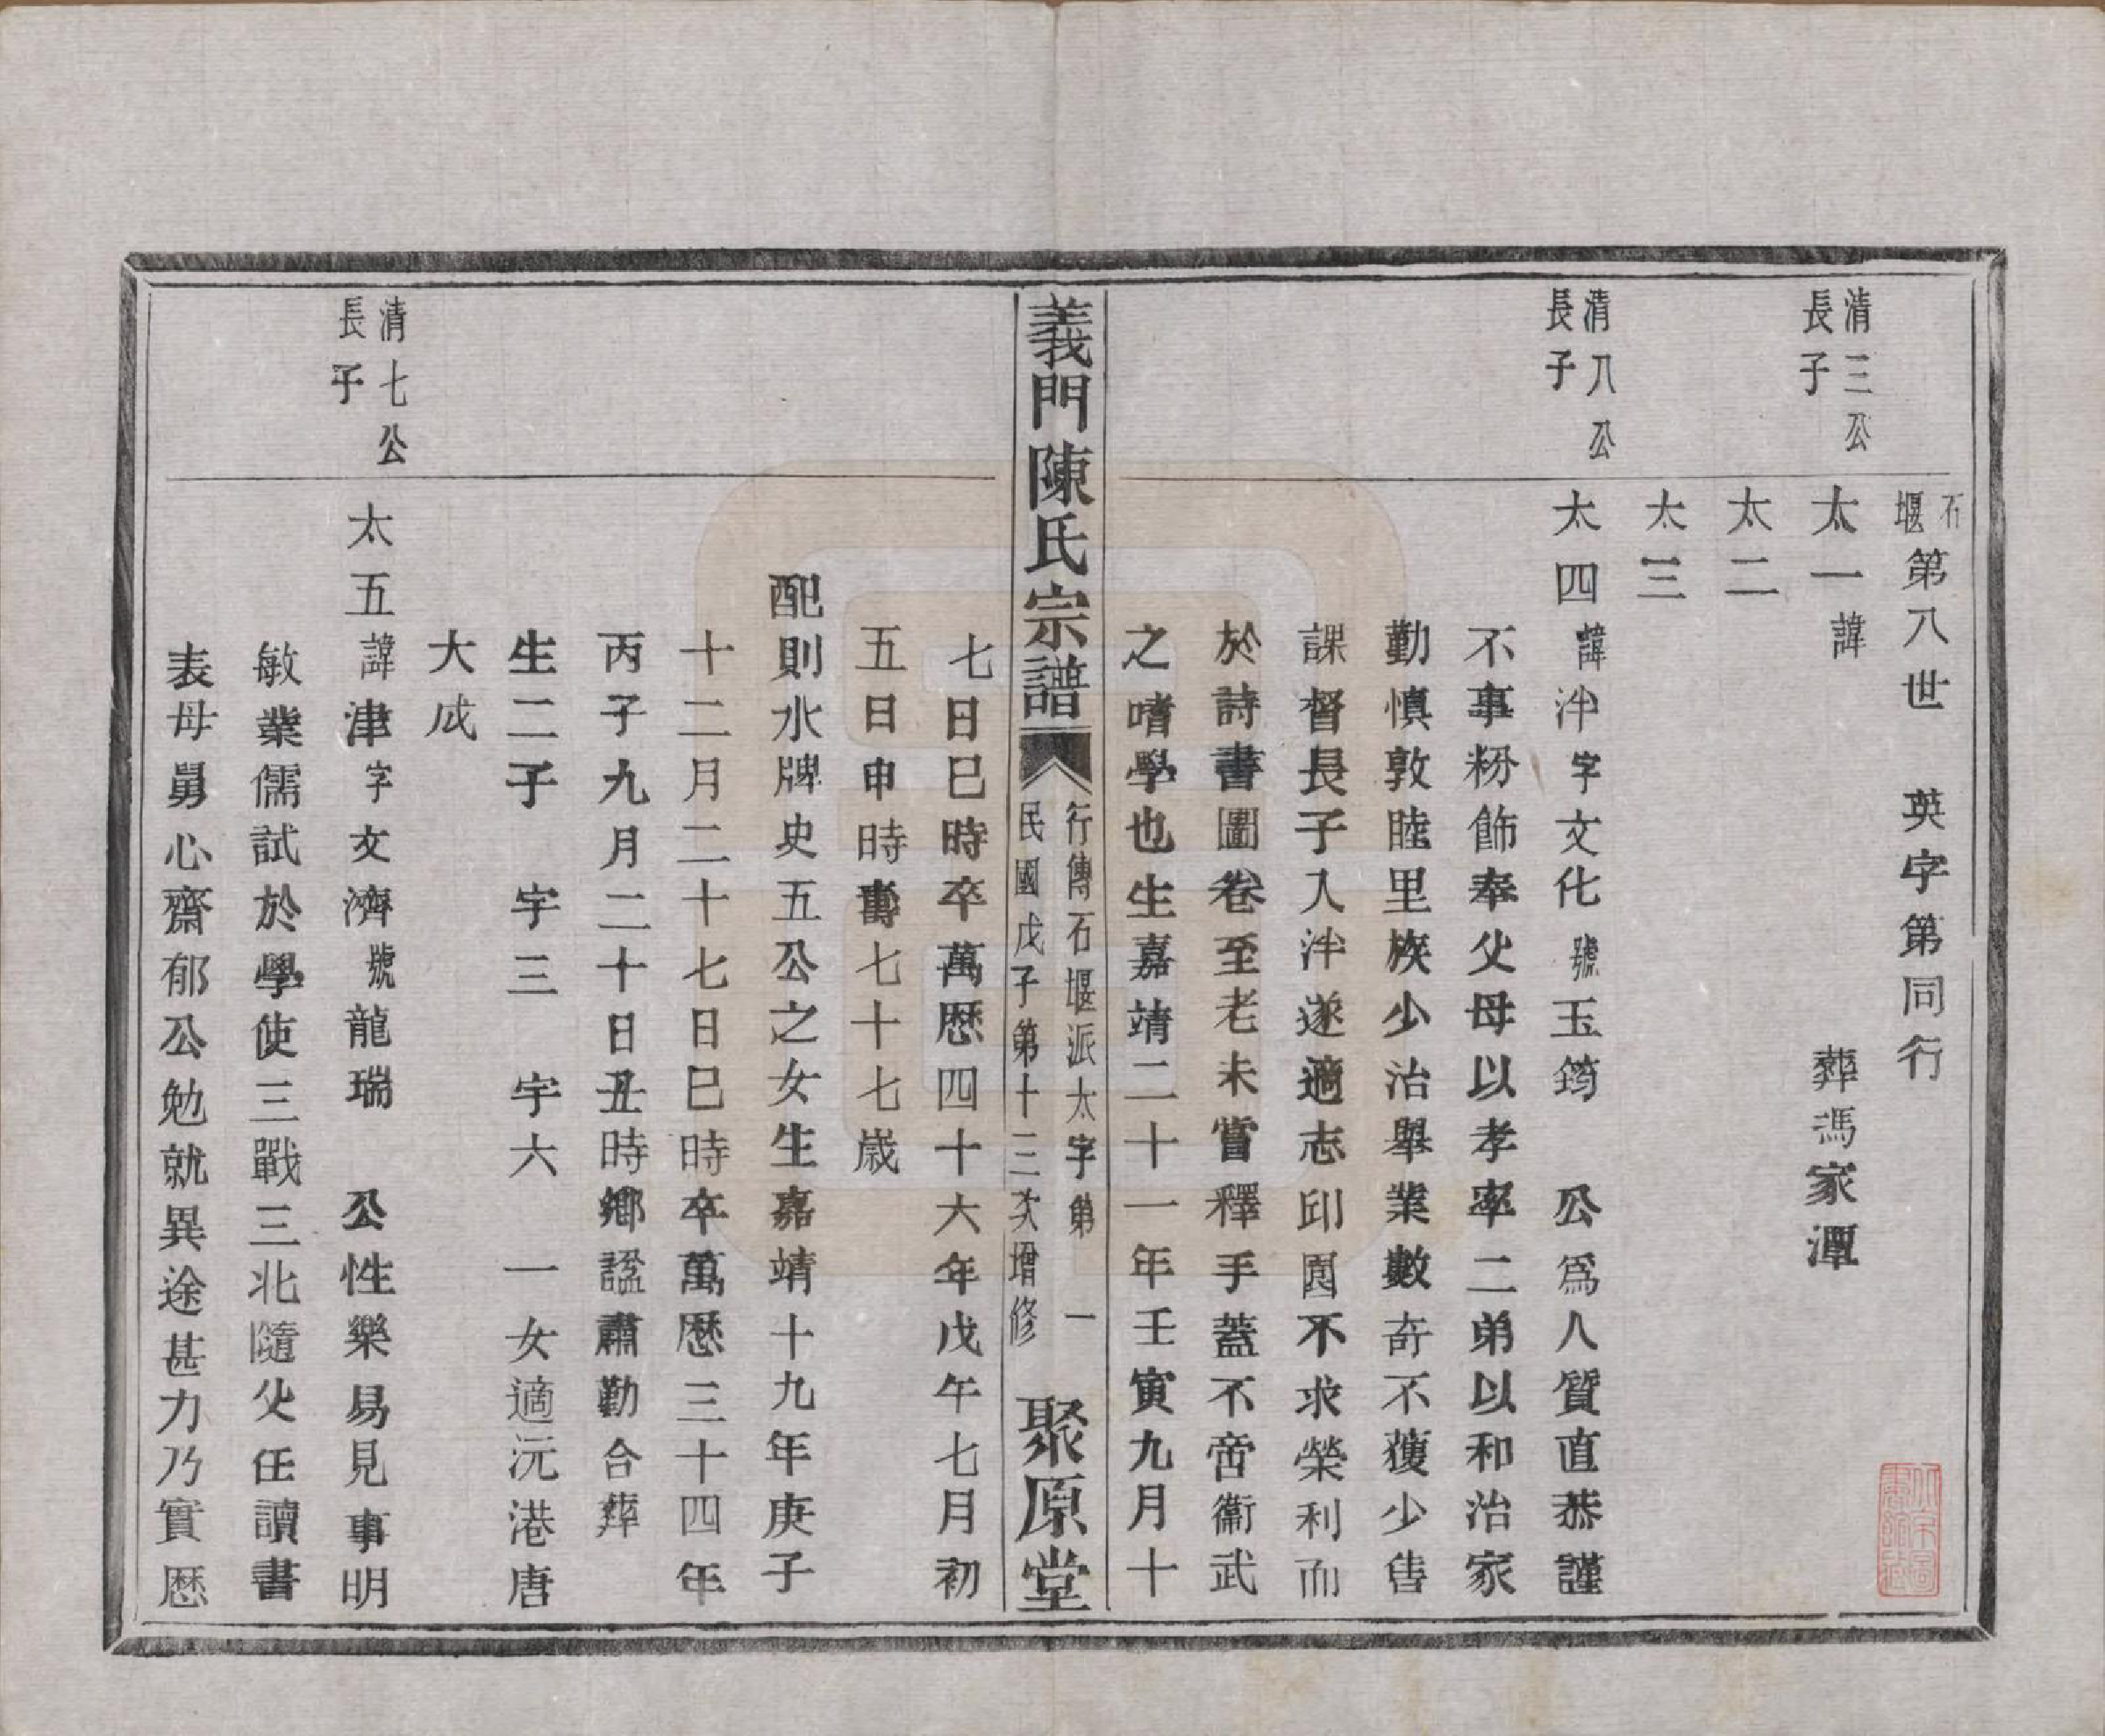 石堰第八世　英字第同行
清三公長子
太一諱　葬馮家潭
太二
太三
清八公長子
太四諱泮字文化號玉筠　公爲人質直恭謹
不事粉飾奉父母以孝率二弟以和治家
勤慎敦睦里族少治舉業數奇不獲少售
課督長子入泮遂適志邱園不求榮利而
於詩書圖卷至老未嘗釋手蓋不啻衞武
之嗜學也生嘉靖二十一年壬寅九月十
義門陳氏宗譜
行傳石堰派太字第　一
民國戊子第十三次增修
聚原堂
七日巳時卒萬歷四十六年戊午七月初
五日申時壽七十七歲
配則水牌史五公之女生嘉靖十九年庚子
十二月二十七日巳時卒萬歷三十四年
丙子九月二十日丑時鄉諡肅勤合葬
生二子　宇三　宇六　一女適沅港唐
大成
清七公長子
太五諱津字文濟號龍瑞　公性樂易見事明
敏業儒試於學使三戰三北隨父任讀書
表母舅心齋郁公勉就異途甚力乃實歷